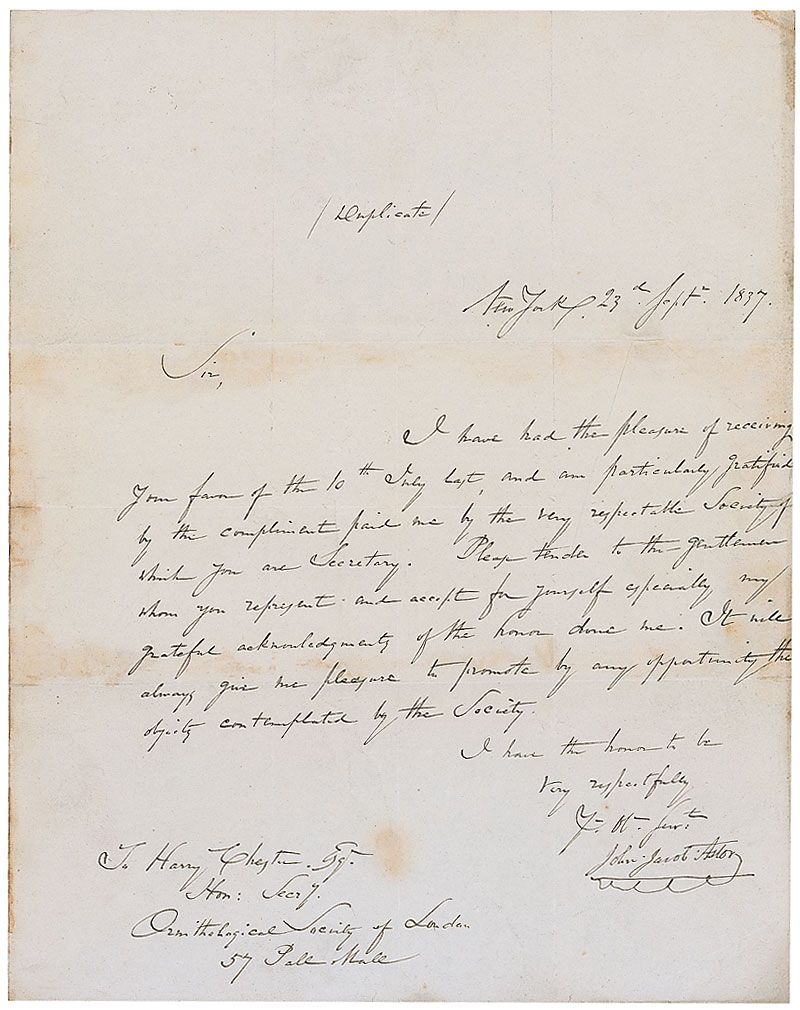 /Duplicate/
New York, 23d. Septr. 1837.
Sir,
I have had the pleasure of receiving
Your favor of the 10th July last, and am particularly gratified
by the compliment paid me by the very respectable Society of
which you are Secretary. Please tender to the gentlemen
whom you represent and accept for yourself especially my
grateful acknowledgments of the honor done me. It will
always give me pleasure to promote by any opportunity the
objects contemplated by the Society.
I have the honor to be
Very respectfully
Yr. Ob. Servt.
John Jacob Astor
To Harry Chester. Esqr.
Hon: Secry.
Ornithological Society of London
57 Pall Mall